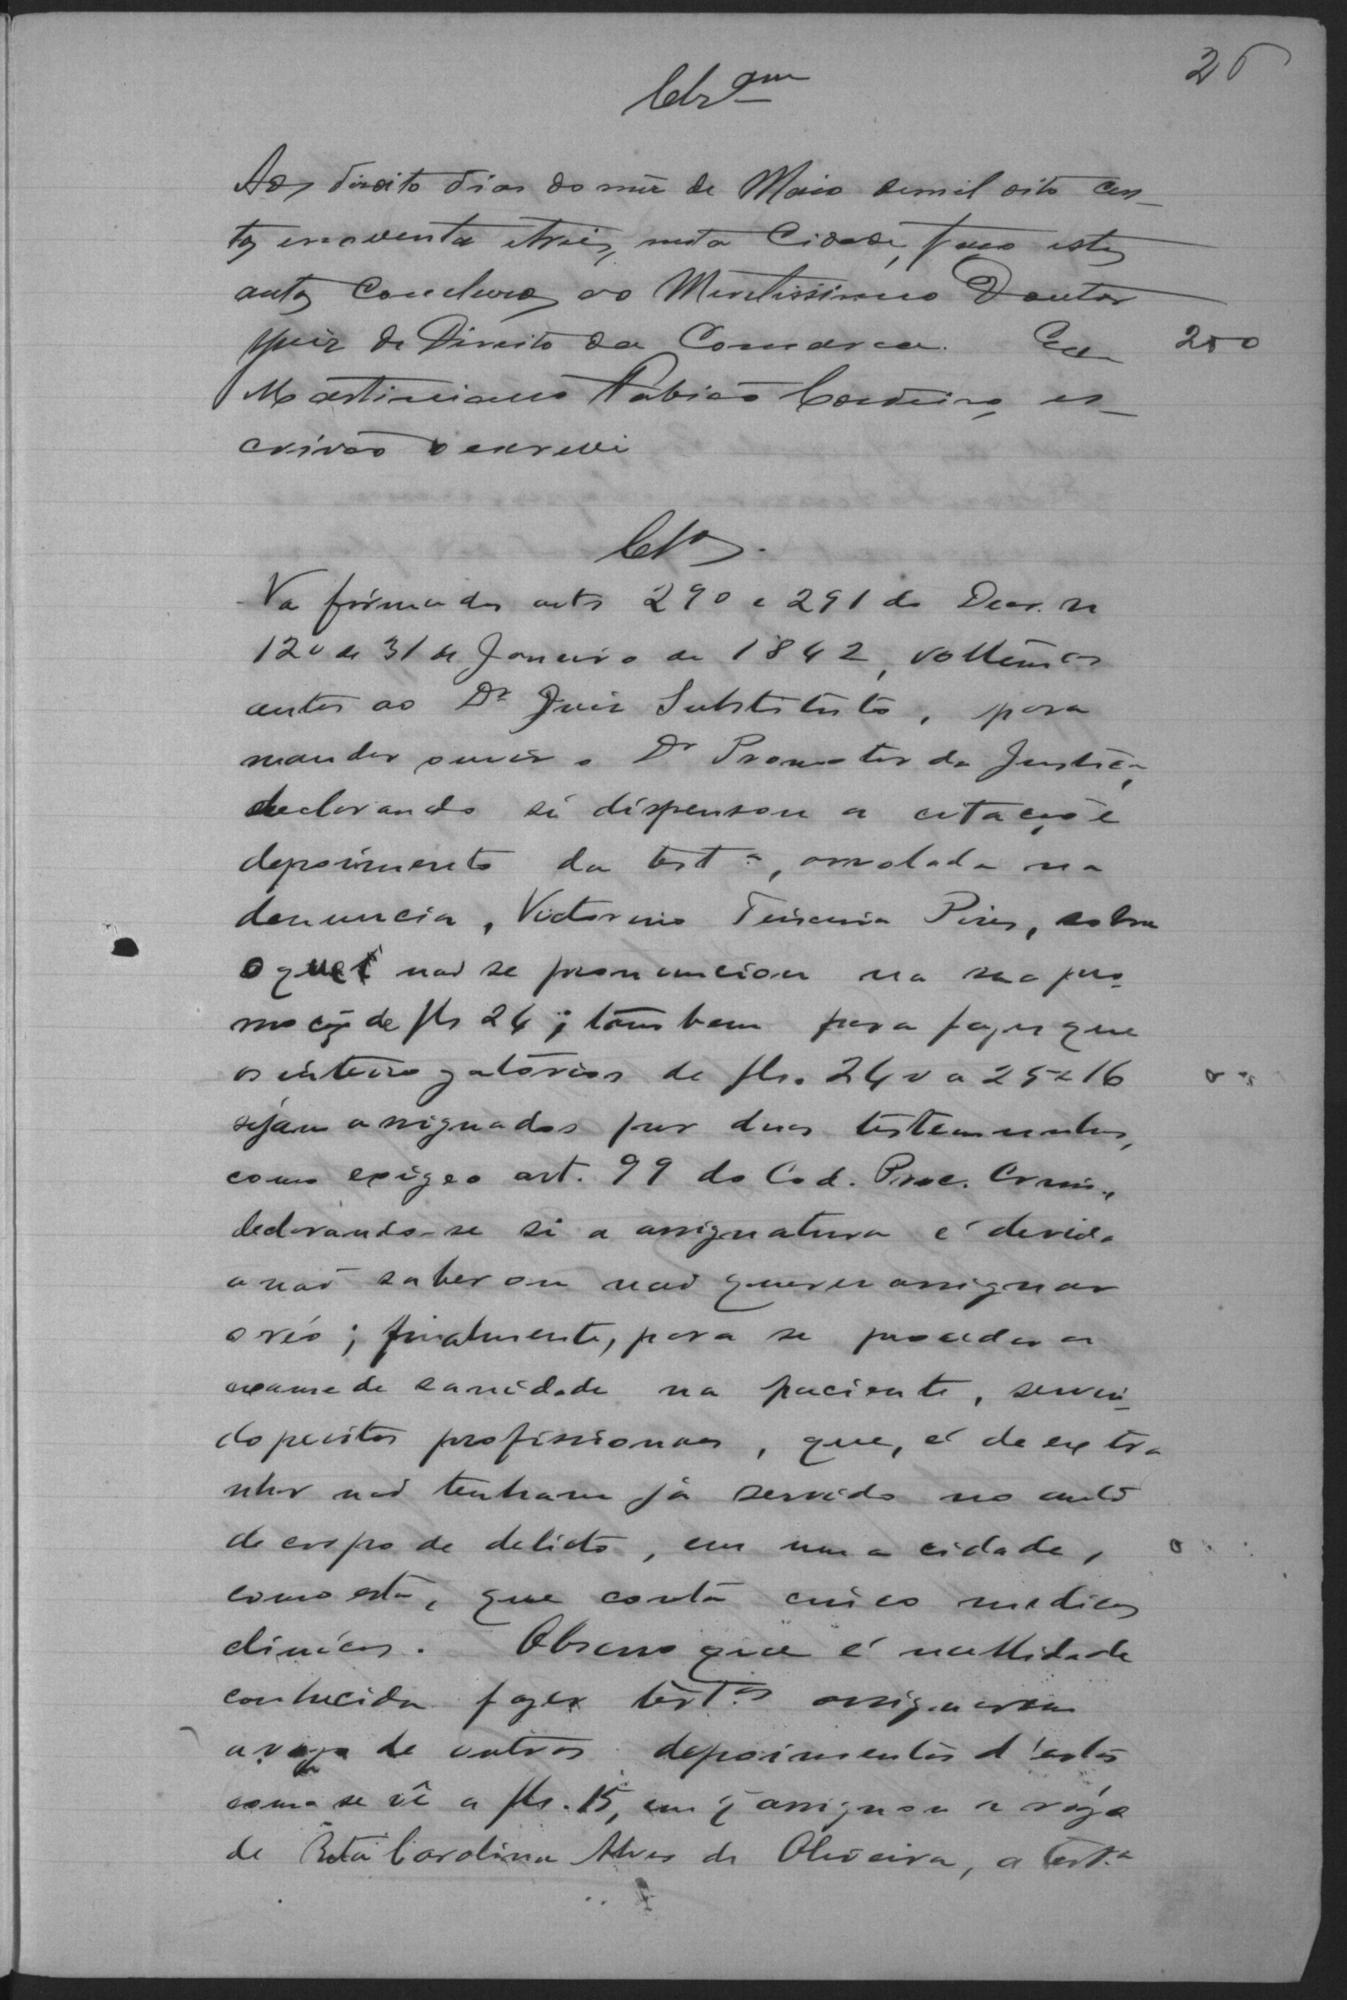 26
Clsam
Aos dizoito dias do mez de Maio de mil oito cen-
tos e noventa e trez, nesta Cidade, faço estes
autos conclusos ao Meretissimo Doutor
Juiz de Direito da Comarca. Eu
200
Martiniano Fabião Cordeiro, es-
crivão o escrevi
Clos.
Na fórma dos arts 290 e 291 do Decr. n
120 de 31 de Janeiro de 1842, voltem os
autos ao Dr Juiz Substituto, para
mandar ouvir o Dr Promotor da Justiça,
declarando si dispensou a citação e
depoimento da testa, arrolada na
denuncia, Victorino Teixeira Pires, sobre
o que não se pronunciou na sua pro-
moção de fls 24; tambem para fazer que
os interrogatórios de fls. 24 v a 25 e 16
sejam assignados por duas testemunhas,
como exige o art. 99 do Cod. Proc. Crim.,
declarando-se si a assignatura é devida
a não saber ou não querer assignar
o réo; finalmente, para se proceder a
exame de sanidade na paciente, servin-
do peritos profissionaes, que, é de extra
nhar não tenham já servido no auto
de corpo de delicto, em uma cidade,
como esta, que conta cinco medicos
clinicos. Observo que é nullidade
conhecida fazer testas assignarem
a rogo de outras depoimentos d'estas
como se vê a fls. 15, em q assignou a rogo
de Rita Carolina Alves de Oliveira, a testa